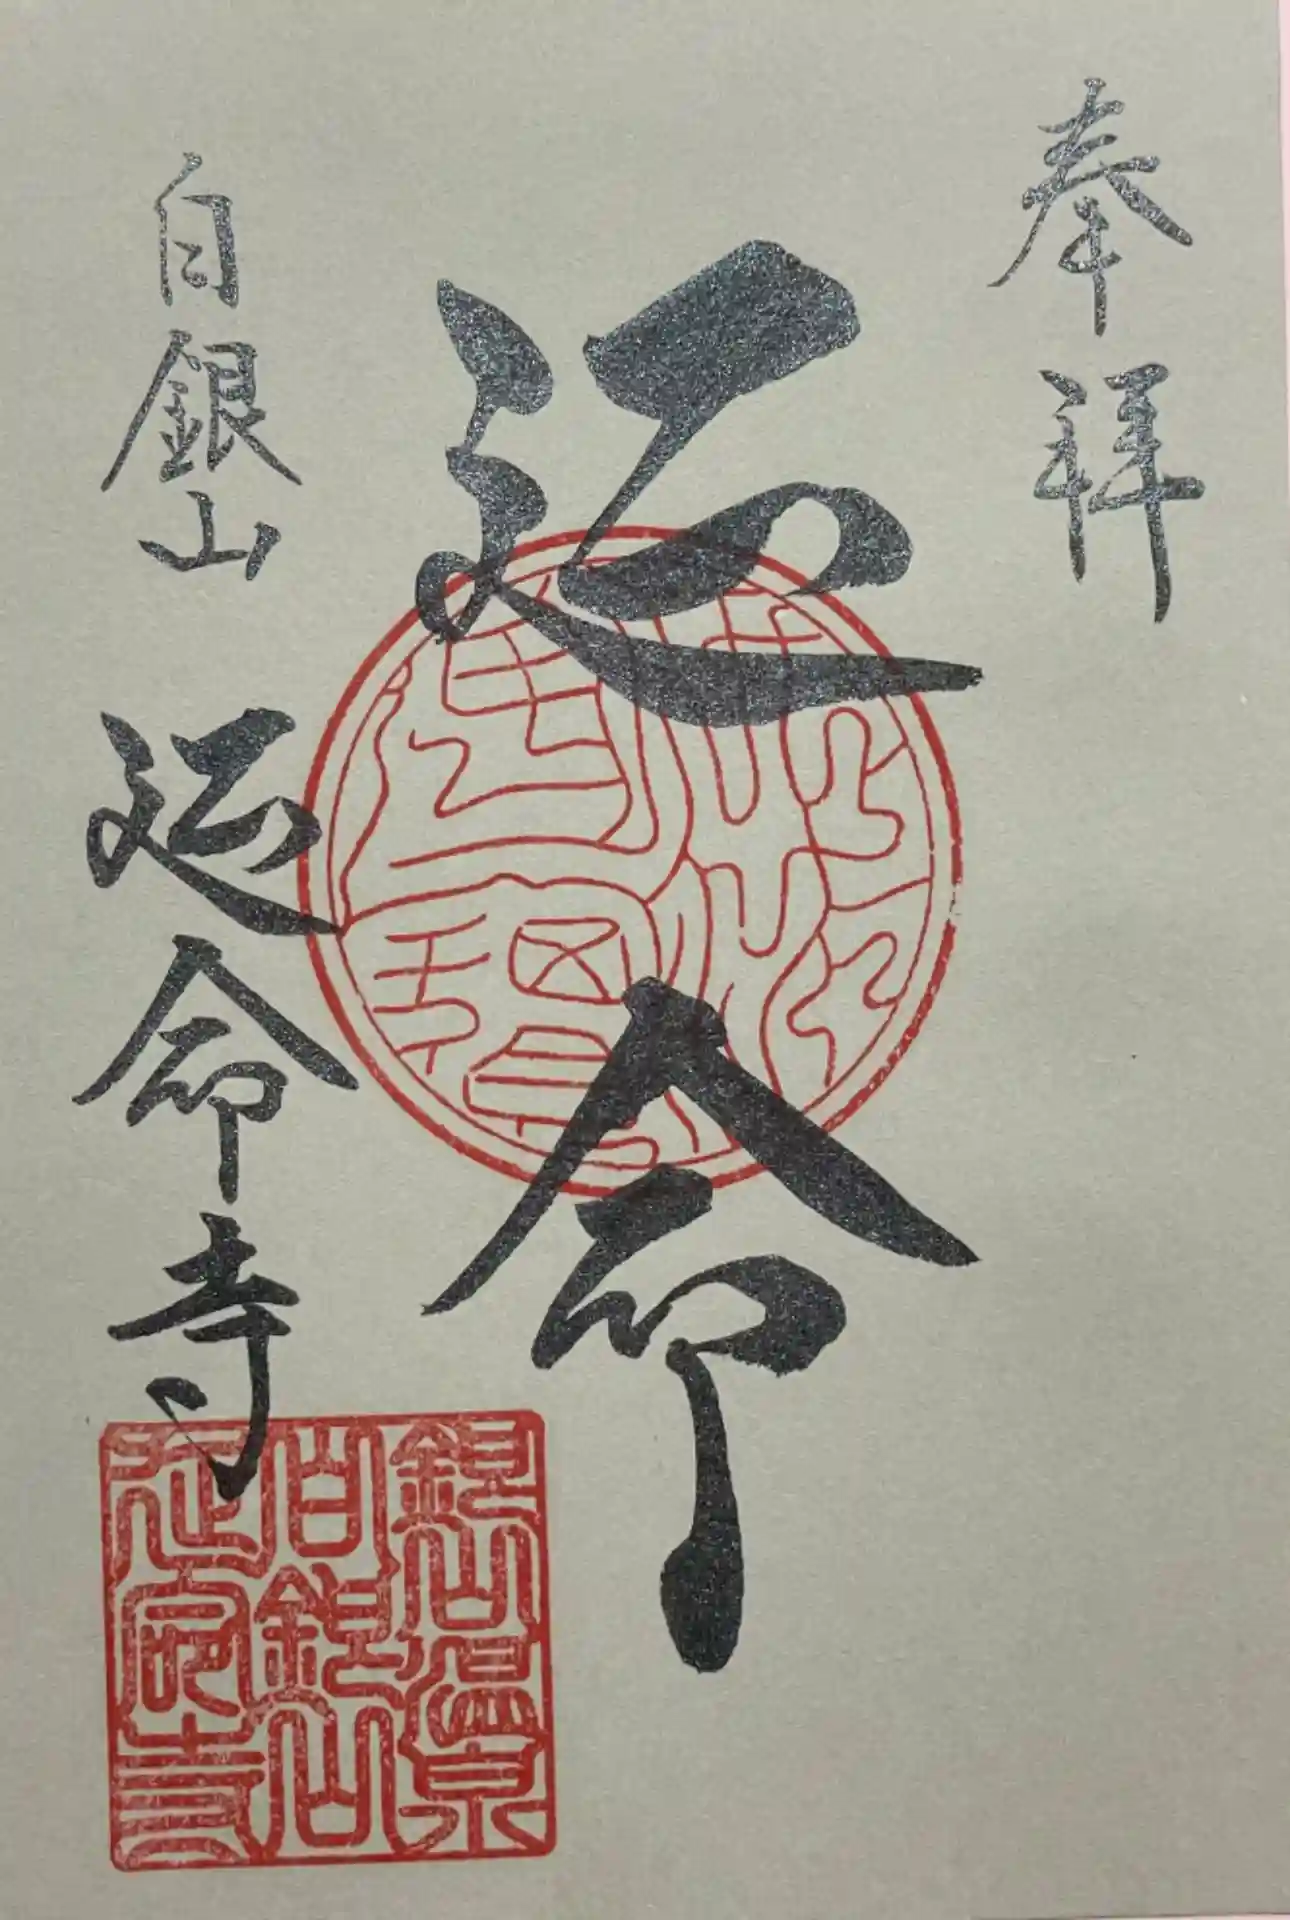 奉拝
延命
白銀山
延命寺
銀山温泉
白銀山
延命寺